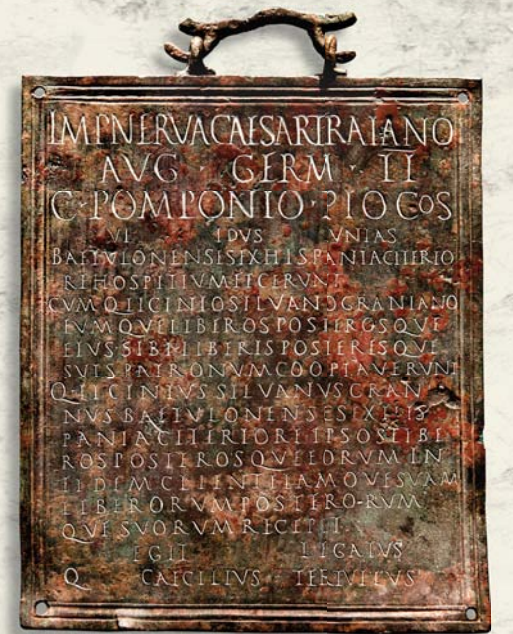 IMP NERVA CAESAR TRAIANO
AVG GERM · II
C · POMPONIO · PIO COS
VI IDVS VNIAS
BAETVLONENSIS EX HISPANIA CITERIO
RE HOSPITIVM FECERVNT
CVM Q LICINIO SILVANO GRANIANO
EVMQVE LIBEROS POSTEROSQVE
EIVS SIBI LIBERIS POSTERISQVE
SVIS PATRONVM COOPTAVERVNT
Q LICINIVS SILVANVS GRAN
NVS BAETVLONENSES EX HIS
PANIA CITERIORE IPSOS LIBE
ROS POSTEROSQVE EORVM IN
FIDEM CLIENTELAMQVE SVAM
LIBERORVM POSTERO-RVM
QVE SVORVM RECEPIT
EGIT LEGATVS
Q CAECILIVS TERTVLLVS